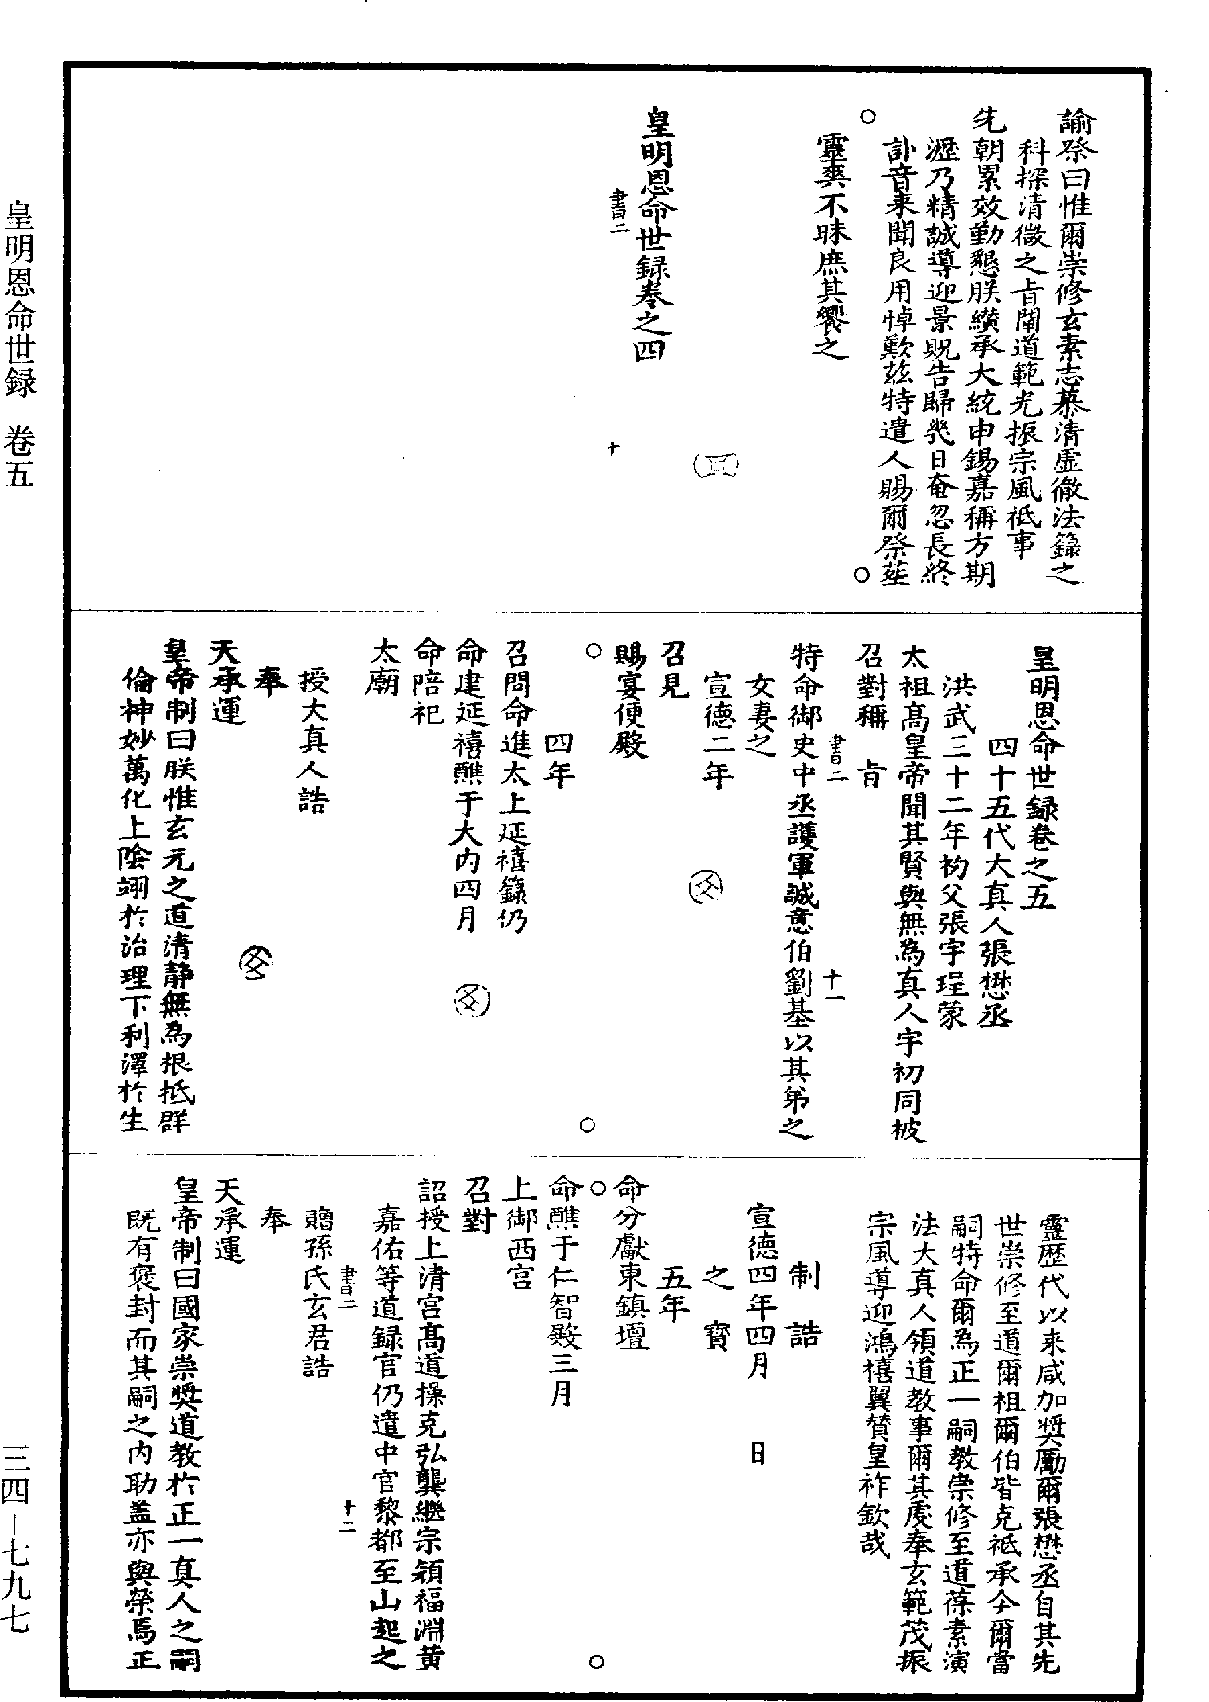 諭祭曰惟爾崇修玄素志慕清虛徹法籙之
科探清微之旨闡道範光振宗風祗事
先朝累效勤懇朕纘承大統申錫嘉稱方期
瀝乃精誠導迎景貺告歸幾日奄忽長終
訃音来聞良用悼歎玆特遣人賜爾祭莚
靈爽不昧庶其饗之
皇明恩命世録卷之四
書二
十
皇明恩命世録卷之五
四十五代大真人張懋丞
洪武三十二年初父張宇珵蒙
太祖髙皇帝聞其賢與無為真人宇初同被
召對稱 旨
書二
十一
特命御史中丞護軍誠意伯劉基以其弟之
女妻之
宣德二年
召見
賜宴便殿
四年
召問命進太上延禧籙仍
命建延禧醮于大内四月
命陪祀
太廟
授大真人誥
奉
天承運
皇帝制曰朕惟玄元之道清靜無為根抵群
倫神妙萬化上陰翊扵治理下利澤扵生
靈歴代以来咸加奬勵爾張懋丞自其先
世崇修至道爾祖爾伯皆克祗承今爾當
嗣特命爾為正一嗣教崇修至道葆素演
法大真人領道教事爾其虔奉玄範茂振
宗風導迎鴻禧翼賛皇祚欽哉
制誥
宣德四年四月 日
之寳
五年
命分獻東鎮壇
命醮于仁智殿三月
上御西宮
召對
詔授上清宮髙道操克弘龔繼宗穎福淵黄
嘉佑等道録官仍遣中官黎都至山起之
書二
十二
贈孫氏玄君誥
奉
天承運
皇帝制曰國家崇奬道教扵正一真人之嗣
既有褒封而其嗣之内助盖亦與榮焉正
皇明恩命世録 卷五
三四—七九七